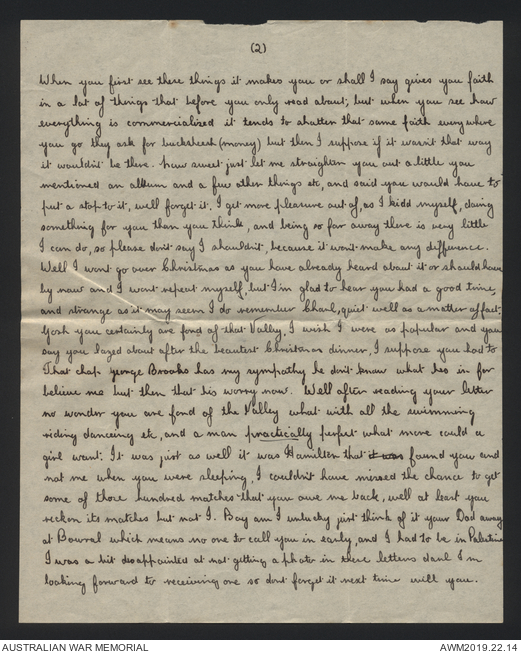 (2)
When you first see these things it makes you or shall I say gives you faith
in a lot of things that before you only read about; but when you see how
everything is commercialised it tends to shatter that same faith everywhere
you go they ask for bucksheesh (money) but then I suppose if it wasn't that way
it wouldn't be there. Now sweet just let me straighten you out a little you
mentioned an album and a few other things etc, and said you would have to
put a stop to it, well forget it, I get more pleasure out of, as I kidd myself, doing
something for you than you think, and being so far away there is very little
I can do, so please don't say I shouldn't, because it won't make any difference.
Well I wont go over Christmas as you have already heard about it or should have
by now and I wont repeat myself, but I'm glad to hear you had a good time,
and strange as it may seem I do remember Charl, quiet well as a matter of fact.
Gosh you certainly are fond of that Valley, I wish I were as popular and you
say you lazed about after the beautest Christmas dinner, I suppose you had to
That chap George Brooks has my sympathy he don't know what hes in for
believe me but then that his worry now. Well after reading your letter
no wonder you are fond of the Valley what with all the swimming
riding danceing etc, and a man practically perfect what more could a
girl want. It was just as well it was Hamilton that it was found you and
not me when you were sleeping, I couldn't have missed the chance to get
some of those hundred matches that you owe me back, well at least you
reckon its matches but not I. Boy am I unlucky just think of it your Dad away
at Bowral which means no one to call you in early, and I had to be in Palestine
I was a bit disappointed at not getting a photo in these letters darl I'm
looking forward to receiving one so dont forget it next time will you.
AUSTRALIAN WAR MEMORIAL
AWM2019.22.14